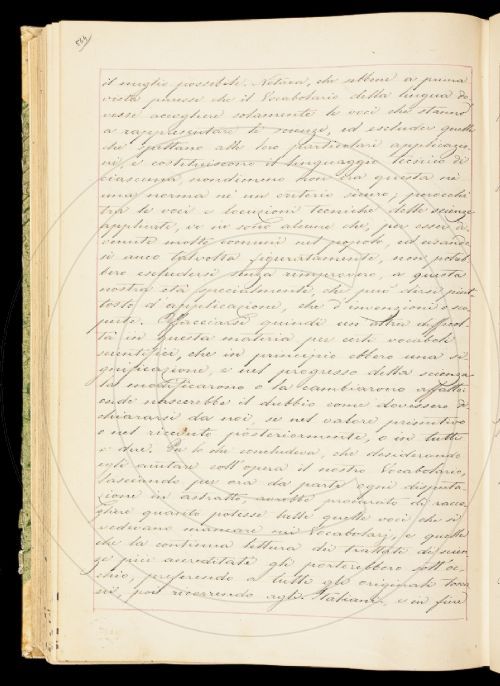 564
il meglio possibile. Notava, che sebbene a prima
vista paresse che il Vocabolario della lingua do
vesse accogliere solamente le voci che stanno
a rappresentare le scienze, ed escluder quelle
che spettano alle loro particolari applicazio
ni, e costituiscono il linguaggio tecnico di
ciascuna, nondimeno non era questa nè
una norma nè un criterio sicuro; perocchè
tra le voci e locuzioni tecniche delle scienze
applicate, ve ne sono alcune che, per esser di
venute molto comuni nel popolo, ed usando
si anco talvolta figuratamente, non potreb
bero escludersi senza rimprovero, a questa
nostra età specialmente, che può dirsi piut
tosto d'applicazione, che d'invenzioni e sco
perte. Affacciarsi quindi un'altra difficol
tà in questa materia per certi vocaboli
scientifici, che in principio ebbero una si
gnificazione, e nel progresso della scienza
la modificarono o la cambiarono affatto:
onde nascerebbe il dubbio come dovessero di
chiararsi da noi, se nel valore primitivo
o nel ricevuto posteriormente, o in tutti
e due. Per lo che concludeva, che desiderando
egli aiutare sott'opera il nostro Vocabolario,
lasciando per ora da parte ogni disputa
zione in astratto, avrebbe procurato di racco
gliere quanto potesse tutte quelle voci che si
vedevano mancare nei Vocabolarj, e quelle
che la continua lettura dei trattati di scien
ze più accreditate gli porterebbero sott'oc
chio, preferendo a tutti gli originali tosca
ni, poi ricorrendo agl'Italiani, e in fine